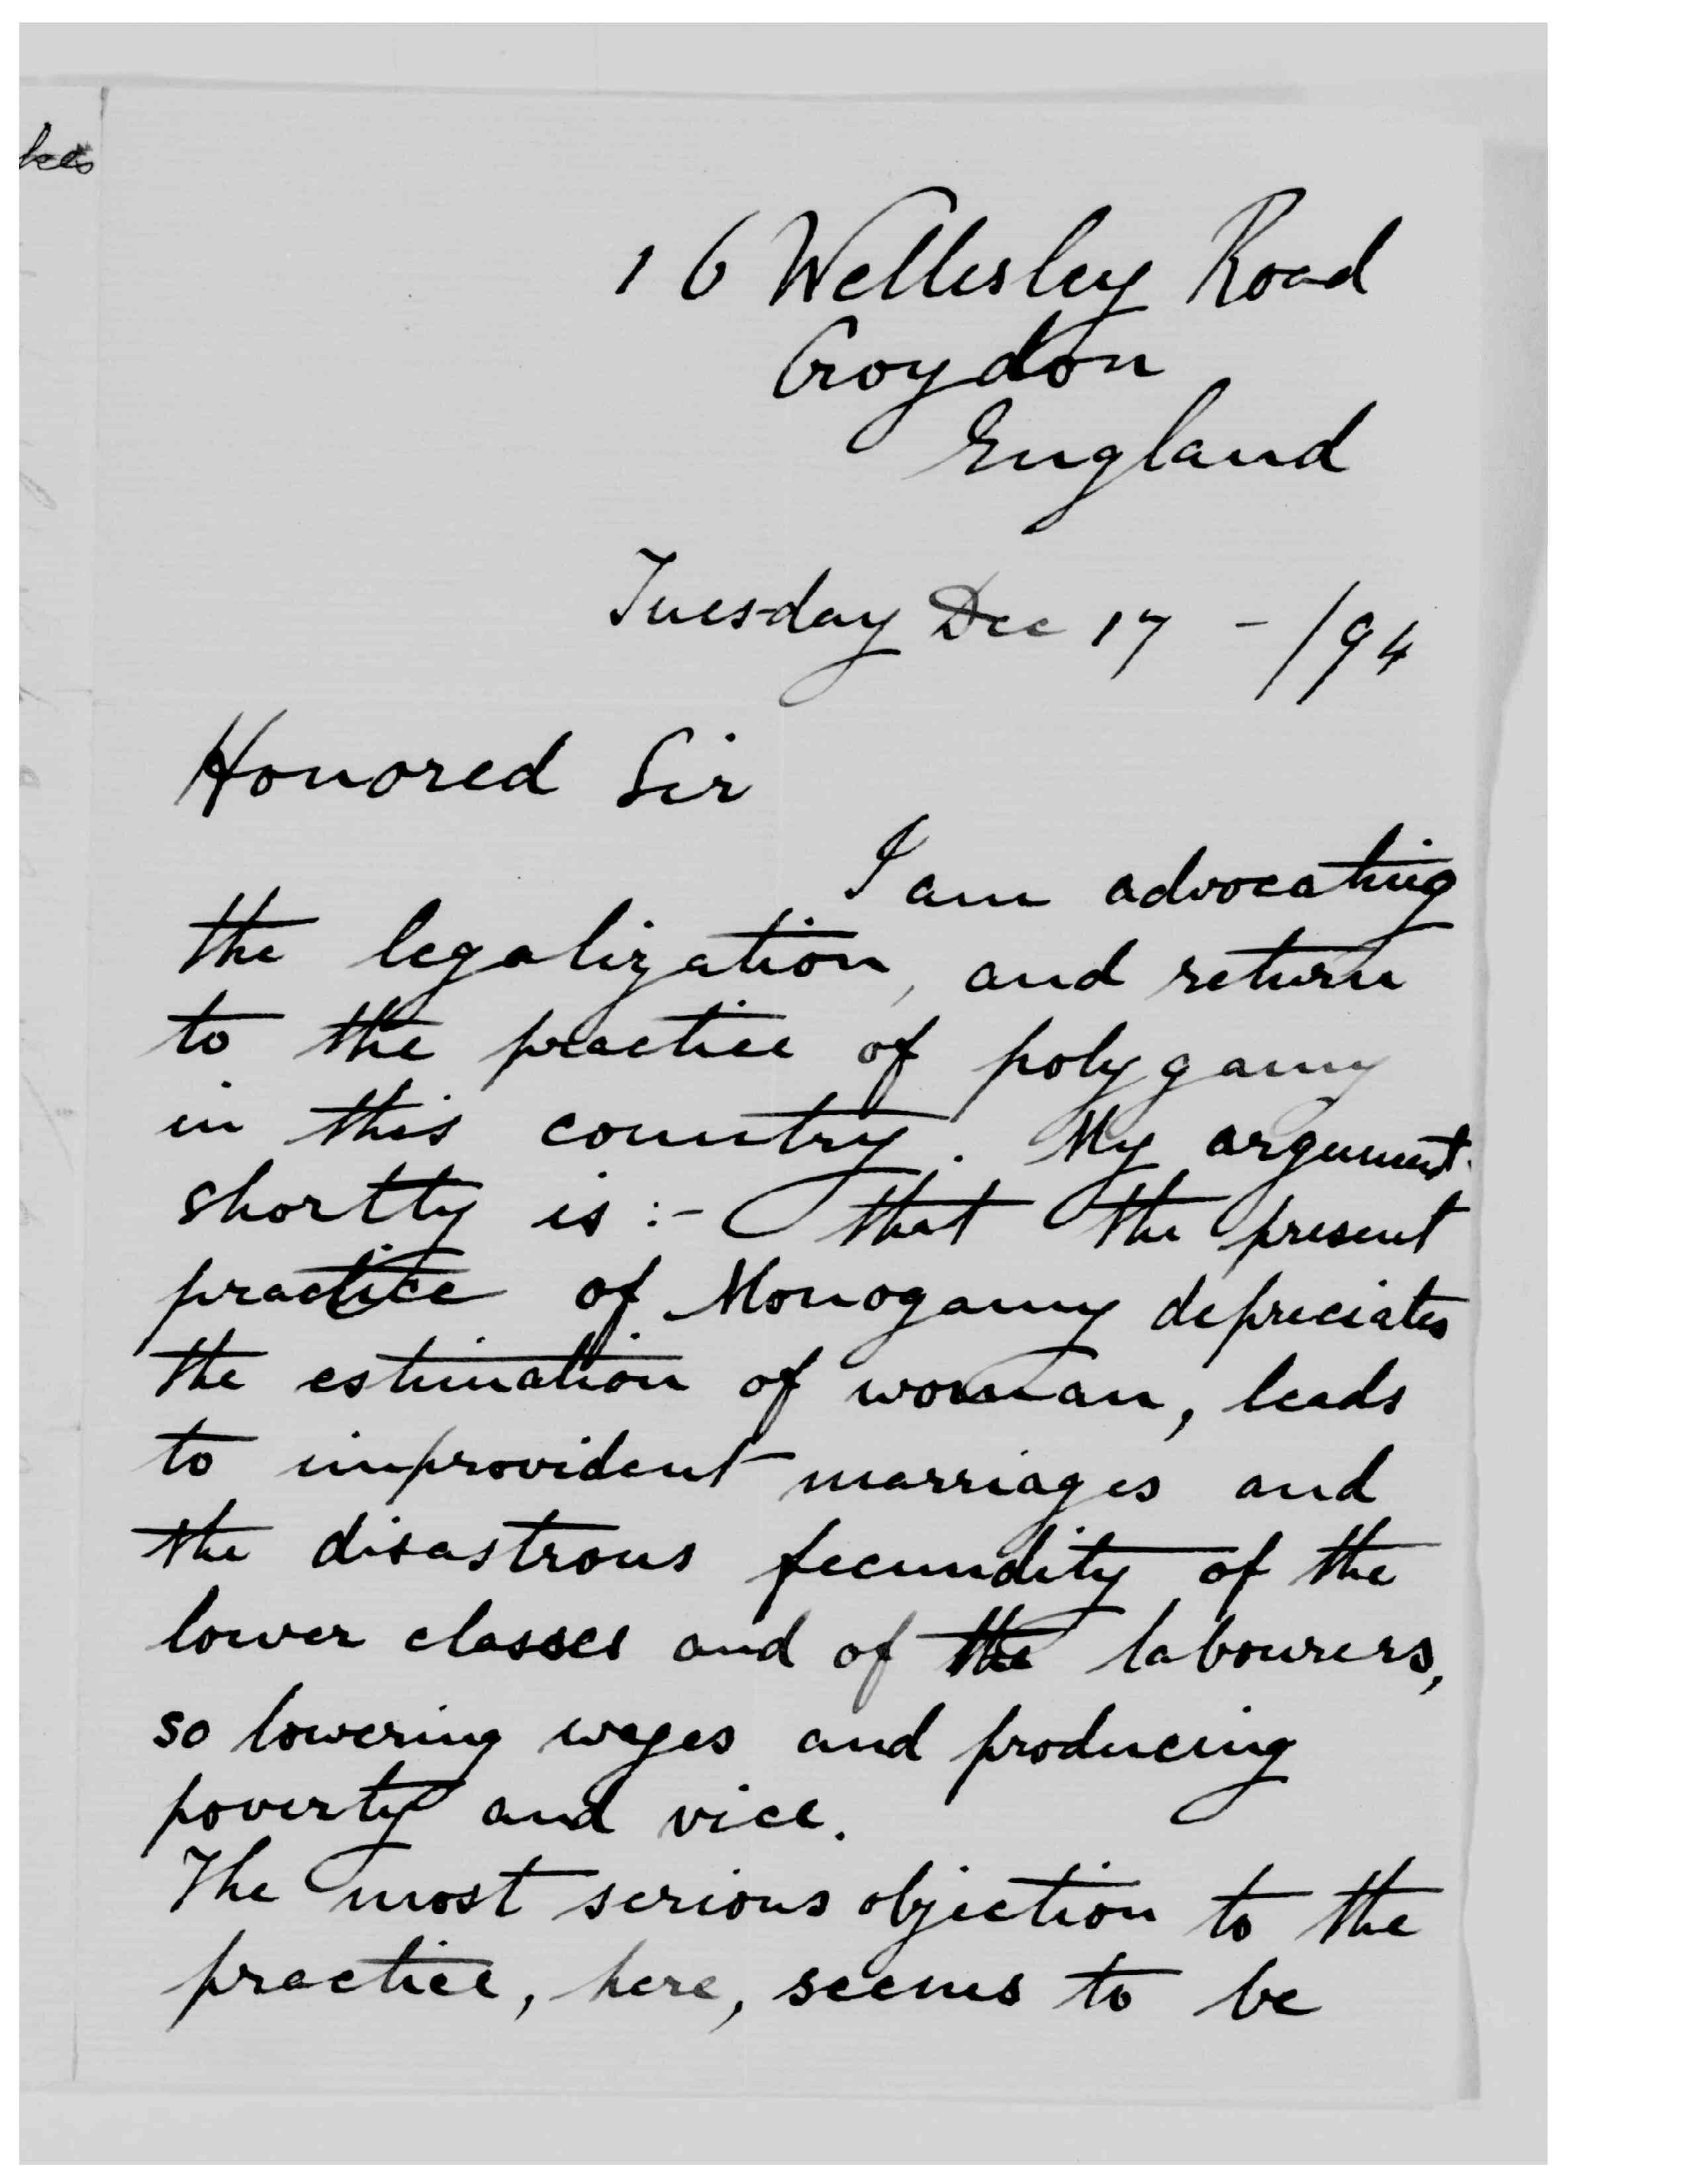 16 Wellesley Road
Croydon
England
Tuesday Dec 17 - /94
Honored Sir
I am advocating
the legalization, and return
to the practice of polygamy
in this country. My argument
shortly is :- that the present
practice of Monogamy depreciates
the estimation of woman, leads
to improvident marriages and
the disastrous fecundity of the
lower classes and of the labourers,
so lowering wages and producing
poverty and vice.
The most serious objection to the
practice, here, seems to be